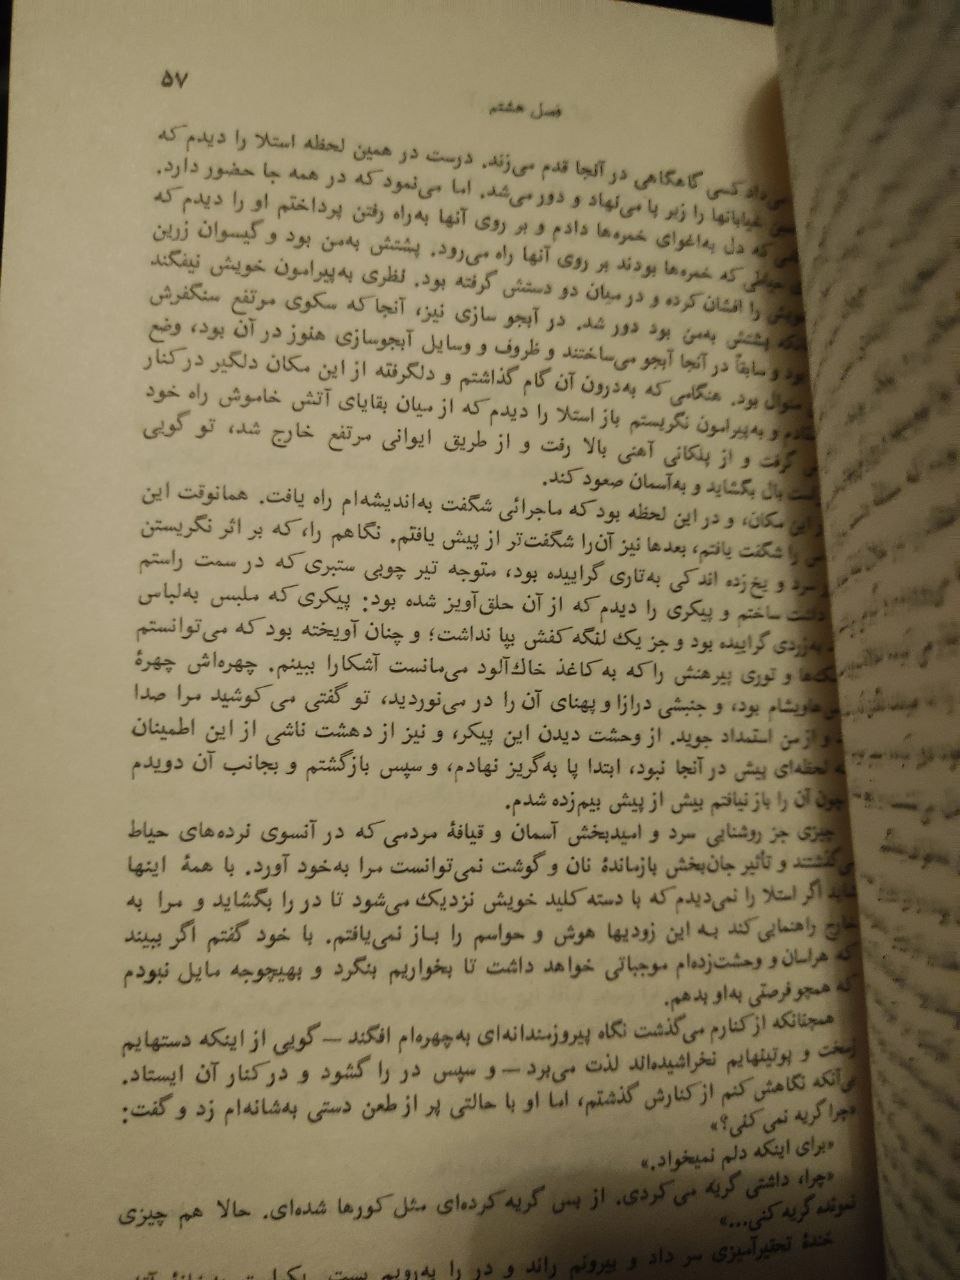 ۵۷
فصل هشتم
می‌داد کسی گاهگاهی در آنجا قدم می‌زند. درست در همین لحظه استلا را دیدم که
خیابانها را زیر پا می‌نهاد و دور می‌شد. اما می‌نمود که در همه جا حضور دارد.
که دل به‌اغوای خمره‌ها دادم و بر روی آنها به‌راه رفتن پرداختم او را دیدم که
حیاطی که خمره‌ها بودند بر روی آنها راه می‌رود. پشتش به‌من بود و گیسوان زرین
خویش را افشان کرده و در میان دو دستش گرفته بود. نظری به‌پیرامون خویش نیفگند
پشتش به‌من بود دور شد. در آبجو سازی نیز، آنجا که سکوی مرتفع سنگفرش
بود و سابقاً در آنجا آبجو می‌ساختند و ظروف و وسایل آبجوسازی هنوز در آن بود، وضع
منوال بود. هنگامی که به‌درون آن گام گذاشتم و دلگرفته از این مکان دلگیر در کنار
و به‌پیرامون نگریستم باز استلا را دیدم که از میان بقایای آتش خاموش راه خود
گرفت و از پلکانی آهنی بالا رفت و از طریق ایوانی مرتفع خارج شد، تو گویی
بال بگشاید و به‌آسمان صعود کند.
این مکان، و در این لحظه بود که ماجرائی شگفت به‌اندیشه‌ام راه یافت. همانوقت این
را شگفت یافتم، بعدها نیز آن‌را شگفت‌تر از پیش یافتم. نگاهم را، که بر اثر نگریستن
سرد و یخ‌زده اندکی به‌تاری گراییده بود، متوجه تیر چوبی ستبری که در سمت راستم
داشت ساختم و پیکری را دیدم که از آن حلق‌آویز شده بود: پیکری که ملبس به‌لباس
به‌زردی گراییده بود و جز یك لنگه کفش بپا نداشت؛ و چنان آویخته بود که می‌توانستم
و توری پیرهنش را که به کاغذ خاك‌آلود می‌مانست آشکارا ببینم. چهره‌اش چهرهٔ
هاویشام بود، و جنبشی درازا و پهنای آن را در می‌نوردید، تو گفتی می کوشید مرا صدا
و از من استمداد جوید. از وحشت دیدن این پیکر، و نیز از دهشت ناشی از این اطمینان
لحظه‌ای پیش در آنجا نبود، ابتدا پا به‌گریز نهادم، و سپس بازگشتم و بجانب آن دویدم
چون آن را باز نیافتم بیش از پیش بیم‌زده شدم.
چیزی جز روشنایی سرد و امیدبخش آسمان و قیافهٔ مردمی که در آنسوی نرده‌های حیاط
می‌گذشتند و تأثیر جان‌بخش بازماندهٔ نان و گوشت نمی‌توانست مرا به‌خود آورد. با همهٔ اینها
شاید اگر استلا را نمی‌دیدم که با دسته کلید خویش نزدیك می‌شود تا در را بگشاید و مرا به
خارج راهنمایی کند به این زودیها هوش و حواسم را باز نمی‌یافتم. با خود گفتم اگر ببیند
که هراسان و وحشت‌زده‌ام موجباتی خواهد داشت تا بخواریم بنگرد و بهیچوجه مایل نبودم
که همچو فرصتی به‌او بدهم.
همچنانکه از کنارم می‌گذشت نگاه پیروزمندانه‌ای به‌چهره‌ام افگند — گویی از اینکه دستهایم
زمخت و پوتینهایم نخراشیده‌اند لذت می‌برد — و سپس در را گشود و در کنار آن ایستاد.
بی‌آنکه نگاهش کنم از کنارش گذشتم، اما او با حالتی پر از طعن دستی به‌شانه‌ام زد و گفت:
«چرا گریه نمی کنی؟»
«برای اینکه دلم نمیخواد.»
«چرا، داشتی گریه می کردی. از بس گریه کرده‌ای مثل کورها شده‌ای. حالا هم چیزی
نمونده گریه کنی...»
خندهٔ تحقیرآمیزی سر داد و بیرونم راند و در را به‌رویم بست.